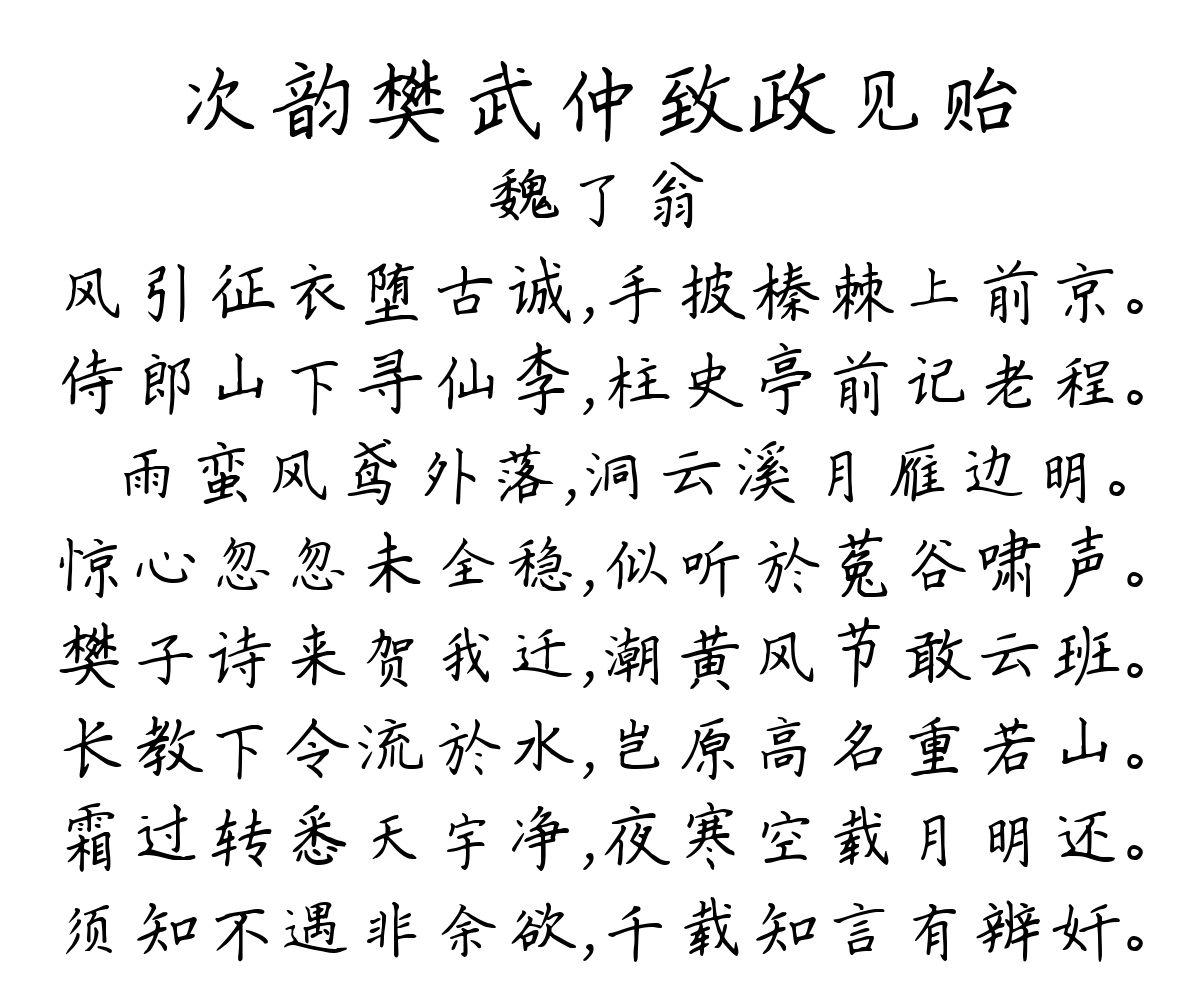 次韵樊武仲致政见贻
魏了翁
风引征衣堕古诚,手披榛棘上前京。
侍郎山下寻仙李,柱史亭前记老程。
雨蛮风鸢外落,洞云溪月雁边明。
惊心忽忽未全稳,似听於菟谷啸声。
樊子诗来贺我迁,潮黄风节敢云班。
长教下令流於水,岂原高名重若山。
霜过转悉天宇净,夜寒空载月明还。
须知不遇非余欲,千载知言有辨奸。